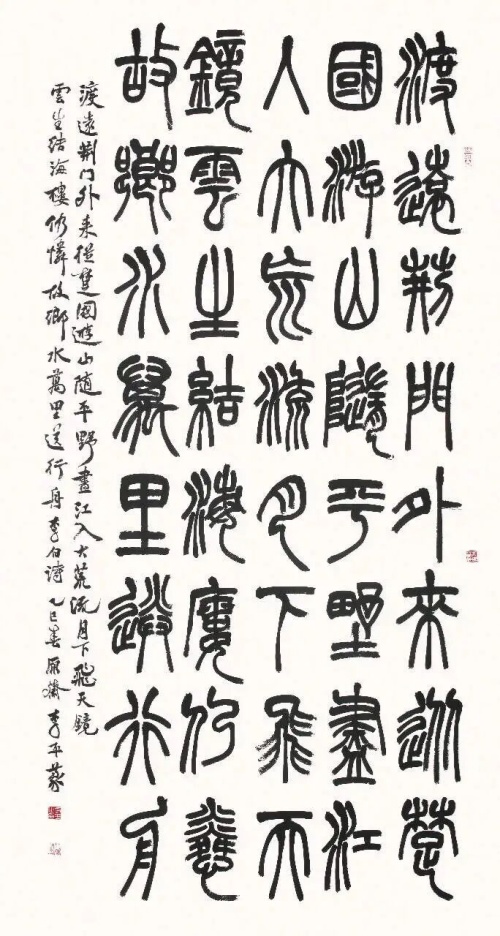 渡遠荊門外來從楚
國游山隨平野盡江
入大荒流月下飛天
鏡雲生結海廔仍憐
故鄉水萬里送行舟
渡遠荊門外來從楚國遊山隨平野盡江入大荒流月下飛天鏡
雲生結海樓仍憐故鄉水萬里送行舟李白詩乙巳春李平篆